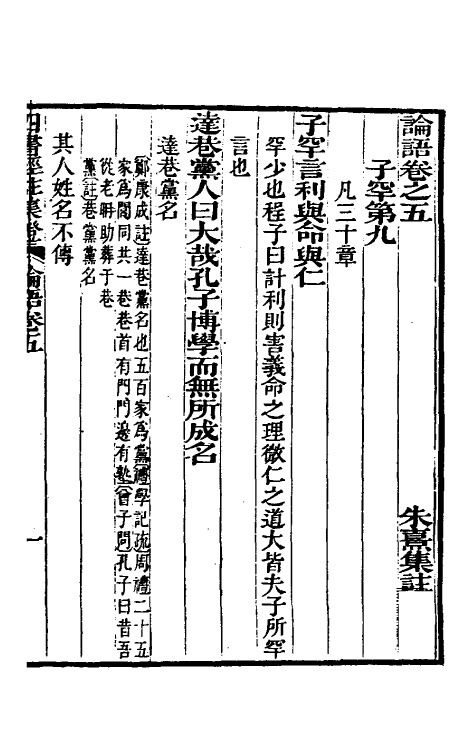 論語卷之五　朱熹集註
子罕第九
凡三十章
子罕言利與命與仁
罕少也程子曰計利則害義命之理微仁之道大皆夫子所罕
言也
達巷黨人曰大哉孔子博學而無所成名
達巷黨名
鄭康成註達巷黨名也五百家爲黨禮學記疏周禮二十五
家爲閭同共一巷巷首有門門邊有塾曾子問孔子曰昔吾
從老聃助葬于巷
黨註巷黨黨名
其人姓名不傳
四書經註集證　論語卷五　一